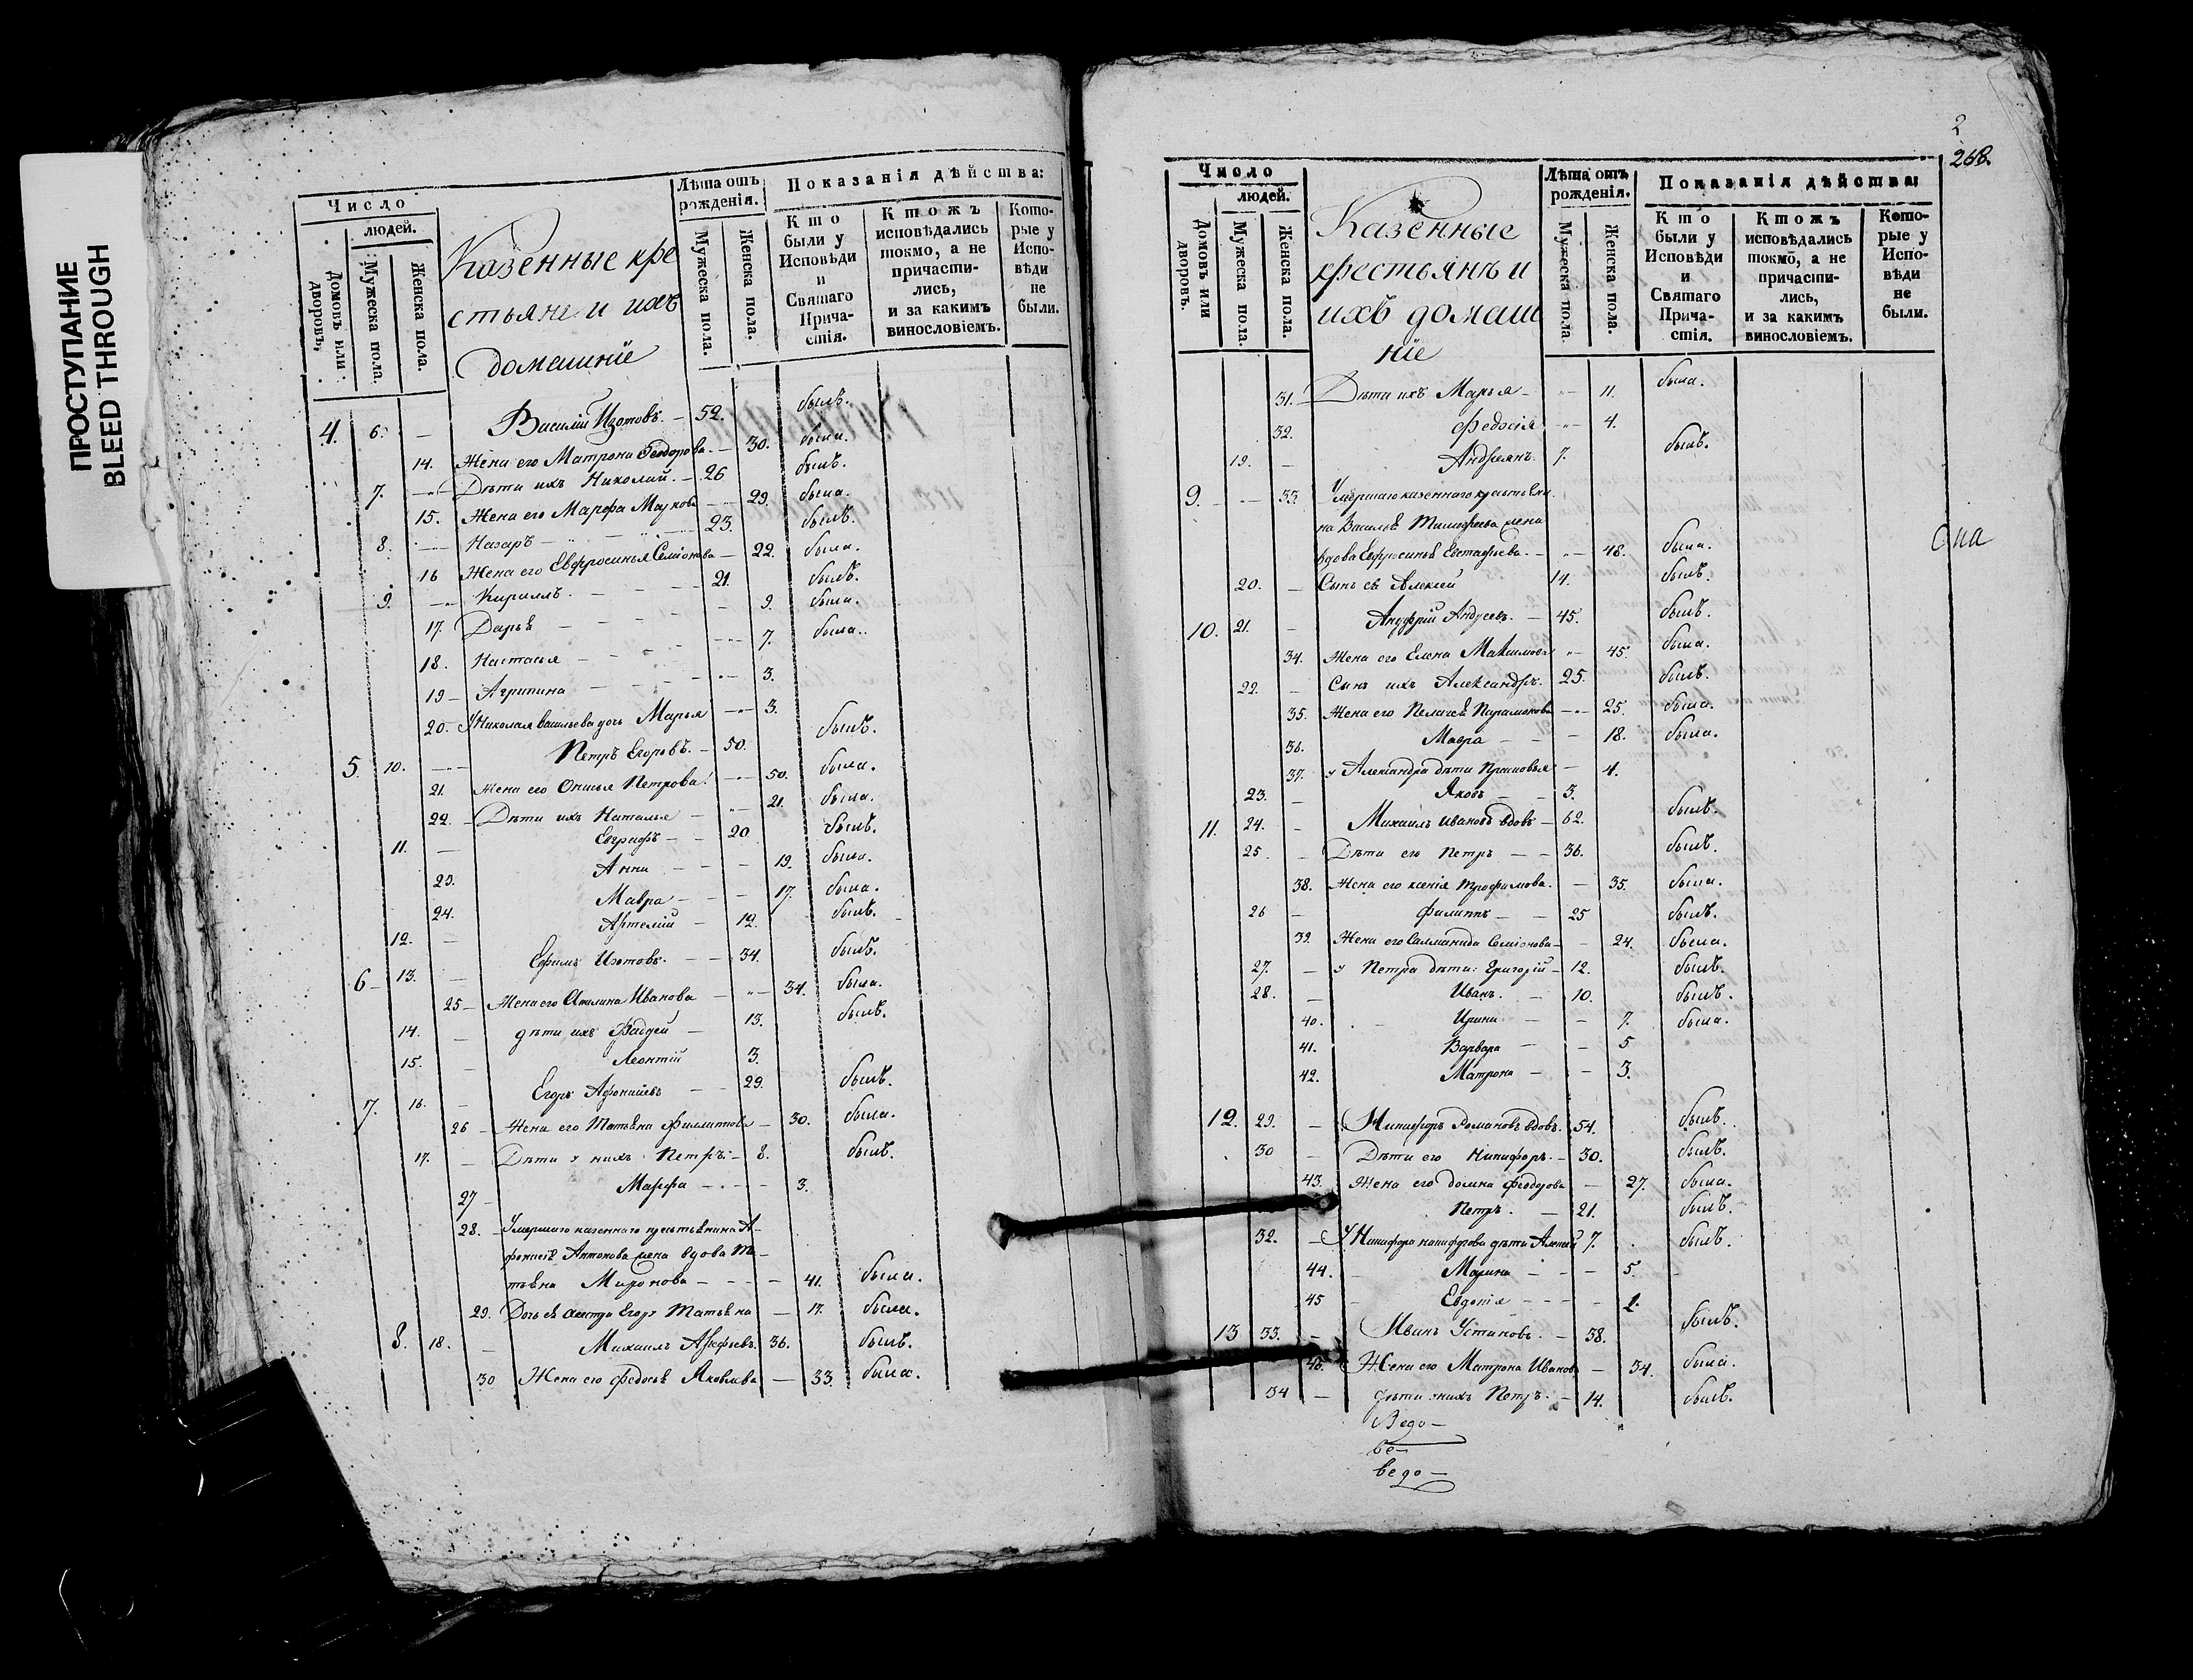 ПРОСТУПАНИЕ
BLEED THROUGH
Число
людей.
Домовъ или дворовъ.
Мужеска пола.
Женска пола.
Казенные кре
стьяне и ихъ
домашніе
Лѣта отъ рожденія.
Мужеска пола.
Женска пола.
Показанія дѣйства:
Кто были у Исповѣди и Святаго Причастія.
Ктожъ исповѣдались токмо, а не причастились, и за какимъ винословіемъ.
Которые у Исповѣди не были.
4. 6. — Василій Изотовъ. — 52. былъ.
14. Жена его Матрона Феодорова. — 30. была.
7. — Дѣти ихъ Николай. — 26 былъ.
15. Жена его Марфа Маркова — 29. была.
8. — Назаръ — 23. былъ.
16 Жена его Евфросинья Семіонова — 22. была.
9. — Кириллъ. — 21. былъ.
17. Дарья — 9. была.
18. Настасья — 7. была.
19 — Агрипина — 3.
20. У Николая Васильева дочь Марья — 3.
5. 10. — Петръ Егоровъ. — 50. былъ.
21. Жена его Онисья Петрова — 50. была.
22. — Дѣти ихъ Наталья — 21. была.
11. — Евграфъ — 20 былъ.
23. Анна — 19. была.
24. Мавра — 17. была.
12. — Артемій — 12. былъ.
6 — 13. — Ефимъ Изотовъ. — 34. былъ.
25 — Жена его Акилина Иванова — 34. была.
14. — дѣти ихъ Фадѣй — 13. былъ.
15. — Леонтій 3.
7. 16. — Егоръ Афонасьевъ — 29. былъ.
26 — Жена его Татьяна Филиппова — 30. была.
17. — Дѣти у нихъ Петръ — 8. былъ.
27 — Марфа — 3.
28. — Умершаго казеннаго крестьянина А-
фонасья Антонова жена вдова Та-
тьяна Миронова — 41. была.
29. Дочь ея Татьяна — 17. была.
8. 18. — Михаилъ Арефьевъ. 36. былъ.
30 Жена его Федосья Яковлева — 33. была.
2
268
Число
людей.
Домовъ или дворовъ.
Мужеска пола.
Женска пола.
Казенные
крестьянъ и
ихъ домаш
ніе
Лѣта отъ рожденія.
Мужеска пола.
Женска пола.
Показанія дѣйства:
Кто были у Исповѣди и Святаго Причастія.
Ктожъ исповѣдались токмо, а не причастились, и за какимъ винословіемъ.
Которые у Исповѣди не были.
31. Дѣти ихъ Марья — 11. была.
32. Федосія — 4.
19. — Андреянъ. 7. былъ.
9. — 33. Умершаго казеннаго крестьяни
на Василья Тимофеева жена
вдова Ефросинья Евстафьева. — 48. была.
Она
20. — Сынъ ея Алексій 14. былъ.
10. 21. — Андрей Андреевъ. — 45. былъ.
34. Жена его Елена Максимова — 45. была.
22. — Сынъ ихъ Александръ. 25. былъ.
35. Жена его Пелагея Парамонова — 25. была.
36. Мавра — 18. была.
37. у Александра дѣти Прасковья — 4.
23. — Яковъ — 3.
11. 24. — Михаилъ Ивановъ вдовъ — 62. былъ.
25. — Дѣти его Петръ — 36. былъ.
38. Жена его Ксенія Трофимова. — 35. была.
26 — Филиппъ — 25 былъ.
39. Жена его Саламанида Семіонова — 24. была.
27. — у Петра дѣти: Григорій — 12. былъ.
28. — Иванъ. — 10. былъ.
40. Ирина — 7. была.
41. Варвара — 5
42. Матрона — 3.
12. 29. — Никифоръ Романовъ вдовъ. 54. былъ.
30 — Дѣти его Никифоръ. — 30. былъ.
43. Жена его Домна Феодорова — 27. была.
Петръ. — 21. былъ.
32. — У Никифора Никифорова дѣти Алексей 7. былъ.
44. Марина — 5.
45 Евдокія — 2.
13 33. — Иванъ Устиновъ. — 38. былъ.
46. Жена его Матрона Иванова — 34. была.
34 — дѣти у нихъ Петръ. — 14. былъ.
Ведо —
ве —
ведо —